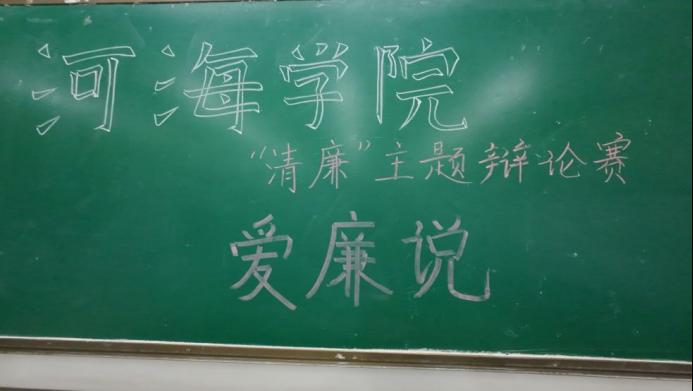 河海学院
“清廉”主题辩论赛
爱廉说